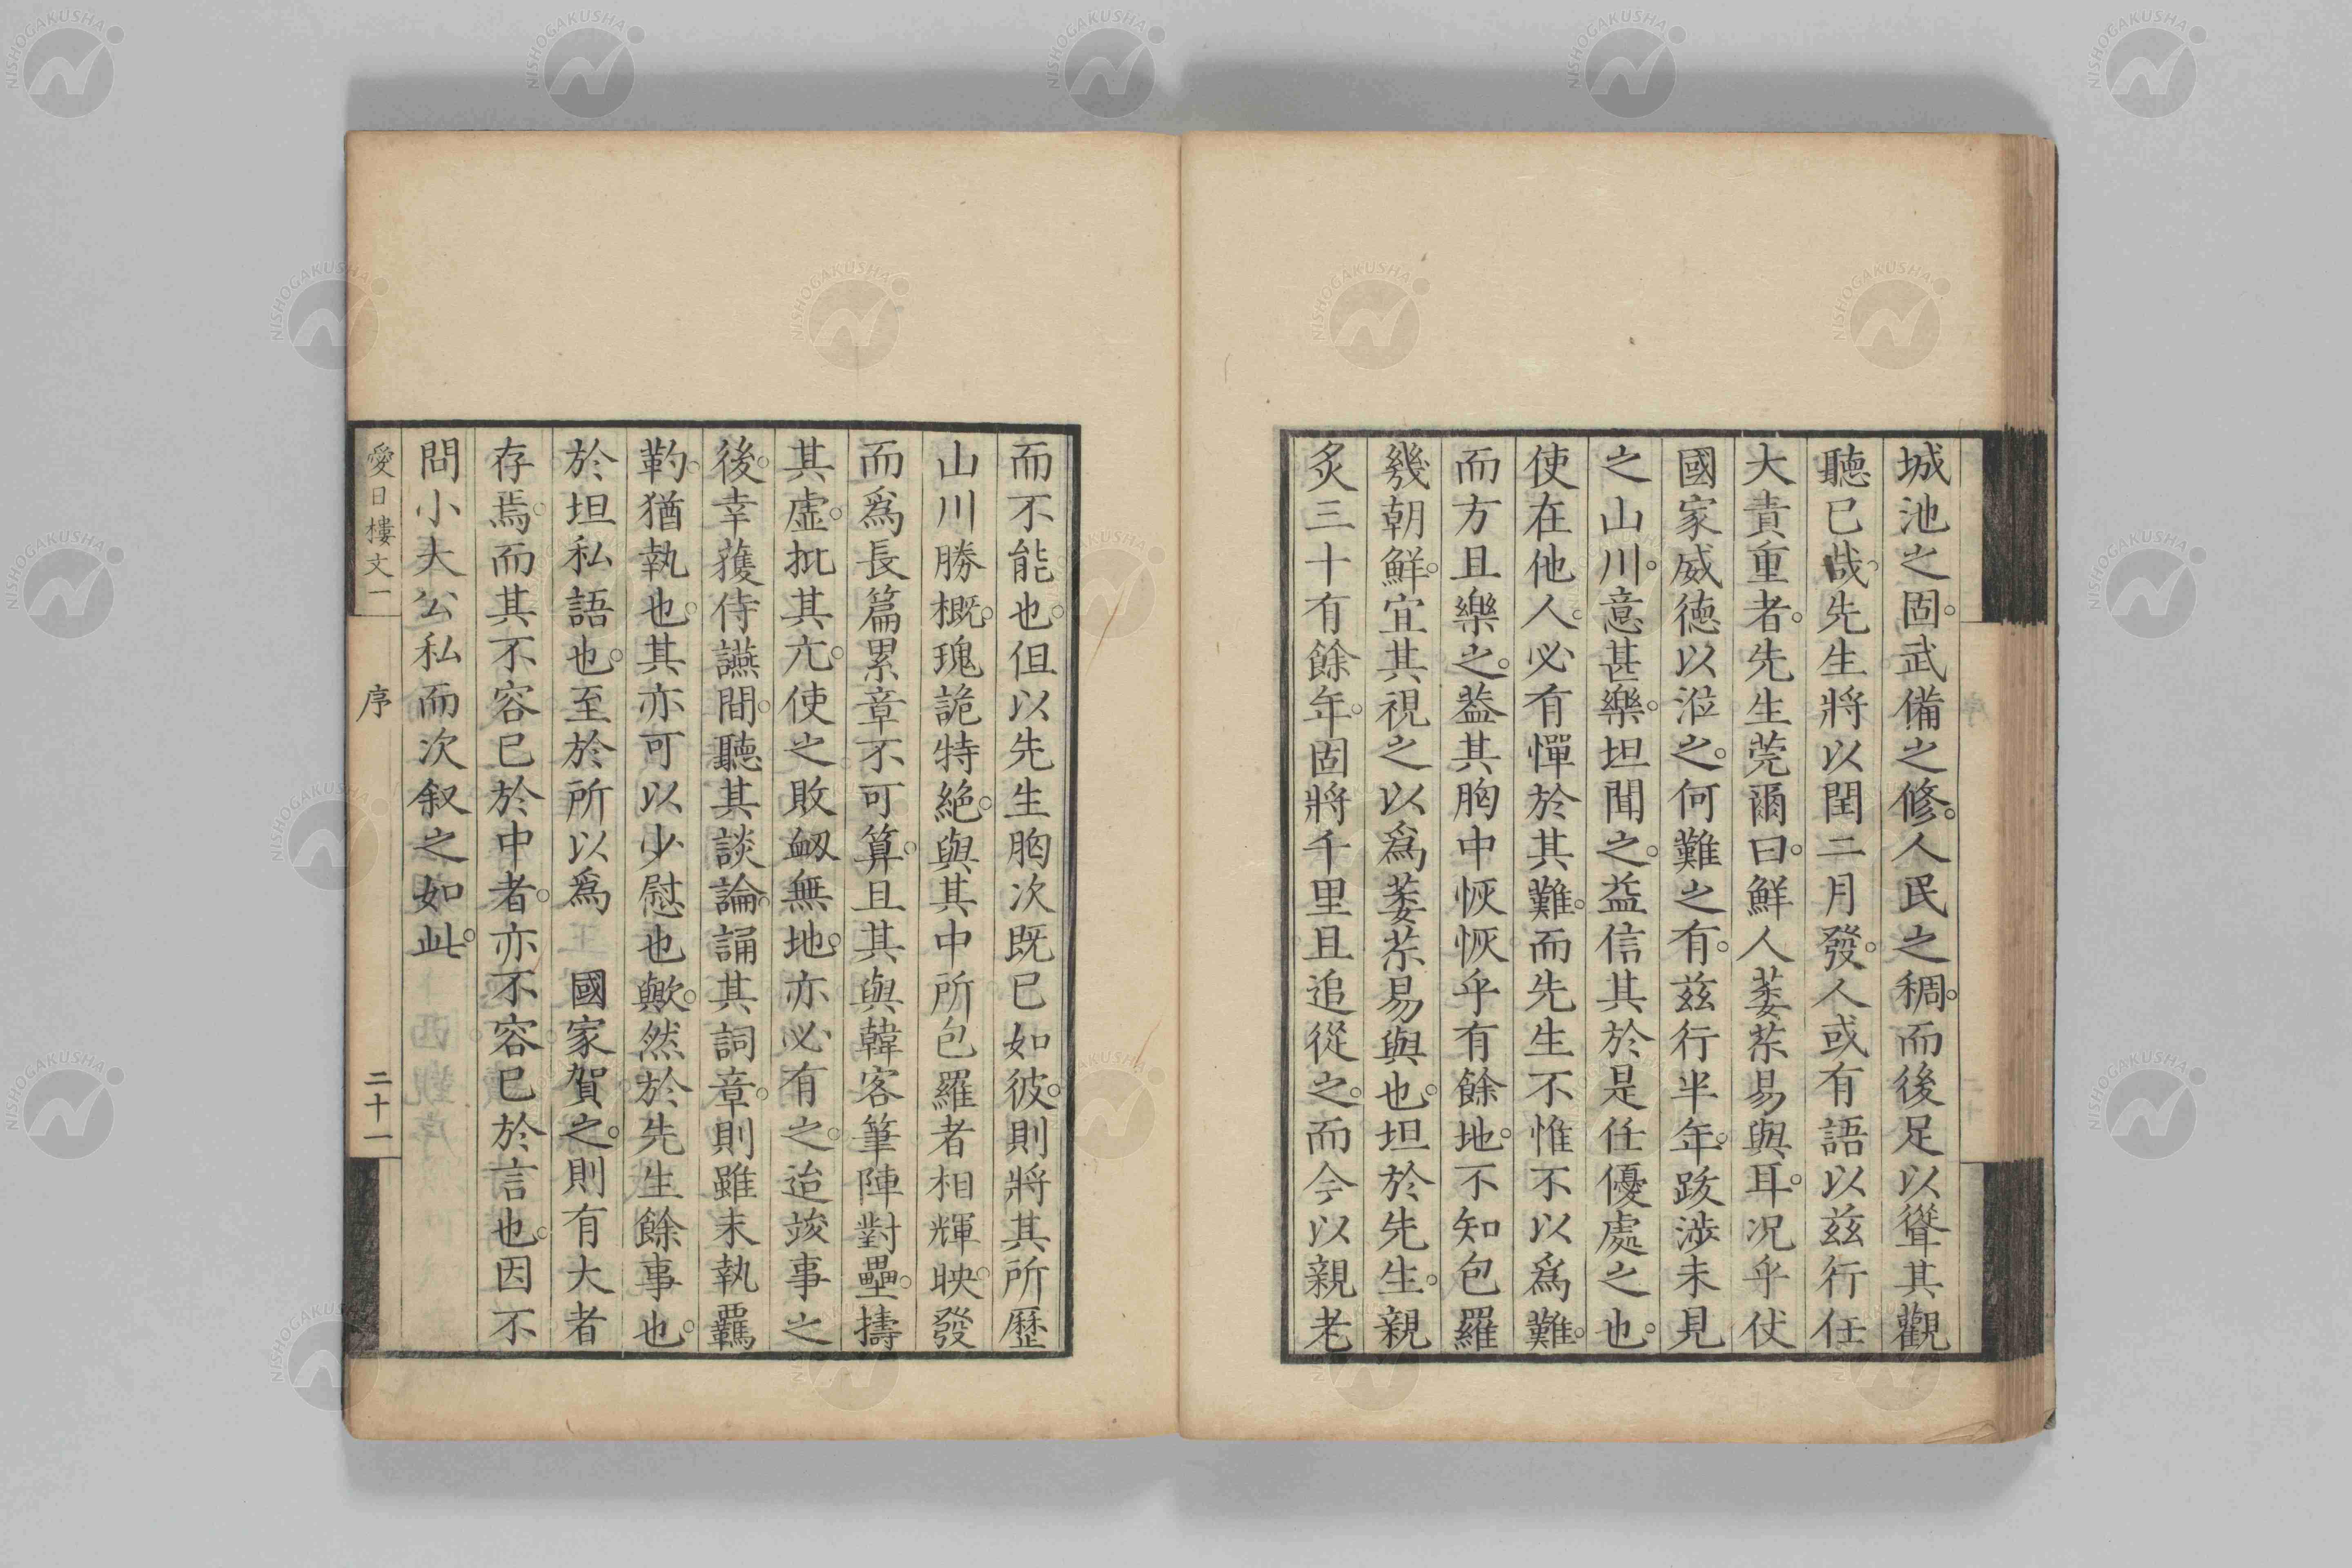 城池之固。武備之修。人民之稠。而後足以聳其觀
聽已哉。先生將以閏二月發。人或有語以茲行任
大責重者。先生莞爾曰。鮮人萎苶易與耳。况乎仗
國家威德以涖之。何難之有。茲行半年。跋涉未見
之山川。意甚樂。坦聞之。益信其於是任優處之也。
使在他人。必有憚於其難。而先生不惟不以爲難。
而方且樂之。蓋其胸中恢恢乎有餘地。不知包羅
幾朝鮮。宜其視之以爲萎苶易與也。坦於先生。親
炙三十有餘年。固將千里且追從之。而今以親老
而不能也。但以先生胸次既已如彼。則將其所歷
山川勝概。瑰詭特絕。與其中所包羅者相輝映。發
而爲長篇累章不可算。且其與韓客筆陣對壘。擣
其虛。批其亢。使之敗衂無地。亦必有之。迨竣事之
後。幸獲侍讌間。聽其談論。誦其詞章。則雖未執羈
靮。猶執也。其亦可以少慰也歟。然於先生餘事也。
於坦私語也。至於所以爲 國家賀之。則有大者
存焉。而其不容已於中者。亦不容已於言也。因不
問小大公私而次叙之如此。
愛日樓文一 序 二十一
NISHOGAKUSHA